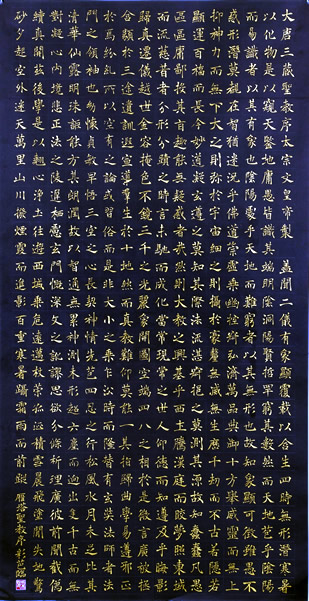 大唐三藏聖教序太宗文皇帝製 蓋聞二儀有象顯覆載以含生四時無形潛寒暑
以化物是以窺天鑒地庸愚皆識其端明陰洞陽賢哲罕窮其數然而天地苞乎陰陽
而易識者以其有象也陰陽處乎天地而難窮者以其無形也故知象顯可徵雖愚不
惑形潛莫覩在智猶迷況乎佛道崇虛乘幽控寂弘濟萬品典御十方舉威靈而無上
抑神力而無下大之則彌於宇宙細之則攝於豪釐無滅無生歷千劫而不古若隱若
顯運百福而長今妙道凝玄遵之莫知其際法流湛寂挹之莫測其源故知蠢蠢凡愚
區區庸鄙投其旨趣能無疑惑者哉然則大教之興基乎西土騰漢庭而皎夢照東域
而流慈昔者分形分跡之時言未馳而成化當常現常之世人仰德而知遵及乎晦影
歸真遷儀越世金容掩色不鏡三千之光麗象開圖空端四八之相於是微言廣被拯
含類於三途遺訓遐宣導羣生於十地然而真教難仰莫能一其指歸曲學易遵邪正
於焉紛糾所以空有之論或習俗而是非大小之乘乍沿時而隆替有玄奘法師者法
門之領袖也幼懷貞敏早悟三空之心長契神情先苞四忍之行松風水月未足比其
清華仙露明珠詎能方其朗潤故以智通無累神測未形超六塵而迥出隻千古而無
對凝心內境悲正法之陵遲栖慮玄門慨深文之訛謬思欲分條析理廣彼前聞截偽
續真開茲後學是以翹心淨土往遊西域乘危遠邁杖策孤征積雪晨飛塗閒失地驚
砂夕起空外迷天萬里山川撥煙霞而進影百重寒暑躡霜雨而前蹤 雁塔聖教序 臨